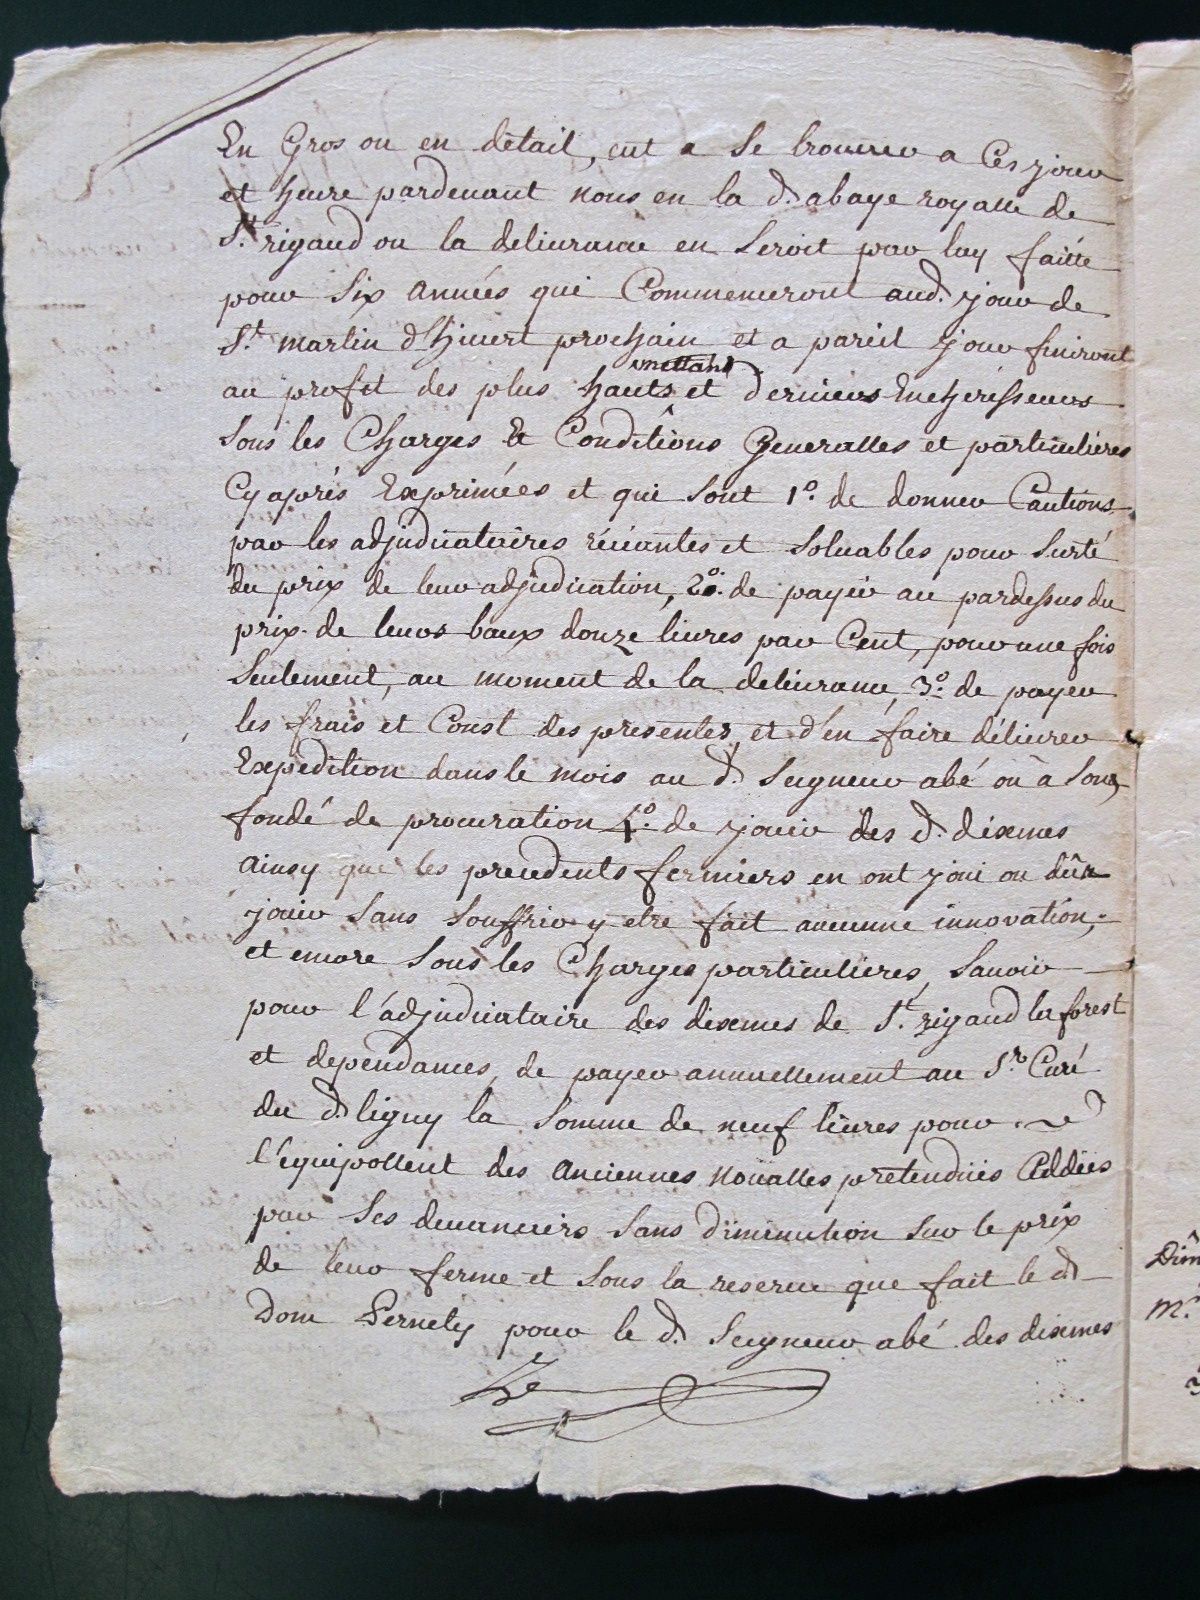 En Gros ou en détail, eut a se trouver a Ces jour
et heure pardevant nous en la d. abaye royalle de
St. rigaud ou la delivrance en Seroit par luy faitte
pour Six années qui Commenceront aud. jour de
St. martin d'hivert prochain et a pareil jour finiront
au profit des plus hauts et derniers Encherisseurs
Sous les Charges Et Conditions Generalles et particulieres
Cy aprés Exprimées et qui Sont 1o. de donner Cautions
par les adjudicataires réceantes et Solvables pour Surté
du prix de leur adjudication, 2o. de payér au pardessus du
prix de leurs baux douze livres par Cent, pour une fois
Seulement, au moment de la delivrance, 3o. de payer
les frais et Coust des presentes, et d'en faire délivrer
Expedition dans le mois au d. Seigneur abé où à Son
fondé de procuration 4o. de jouir des d. dixmes
ainsy que les precedents fermiers en ont joui ou dûn
jouir Sans Souffrir y etre fait aucunne innovation;
et encore Sous les Charges particulieres, Savoir
pour l'adjudicataire des dixmes de St. rigaud la forest
et dependances, de payer annuellement au Sr. Curé
du d. ligny la Somme de neuf livres pour
l'équipollent des anciennes novalles prétendües Cëdées
par Ses devanciers Sans diminution Sur le prix
de leur ferme et Sous la reserve que fait le d.
Dom Pernety pour le d. Seigneur abé des dixmes
Dim
Mr.